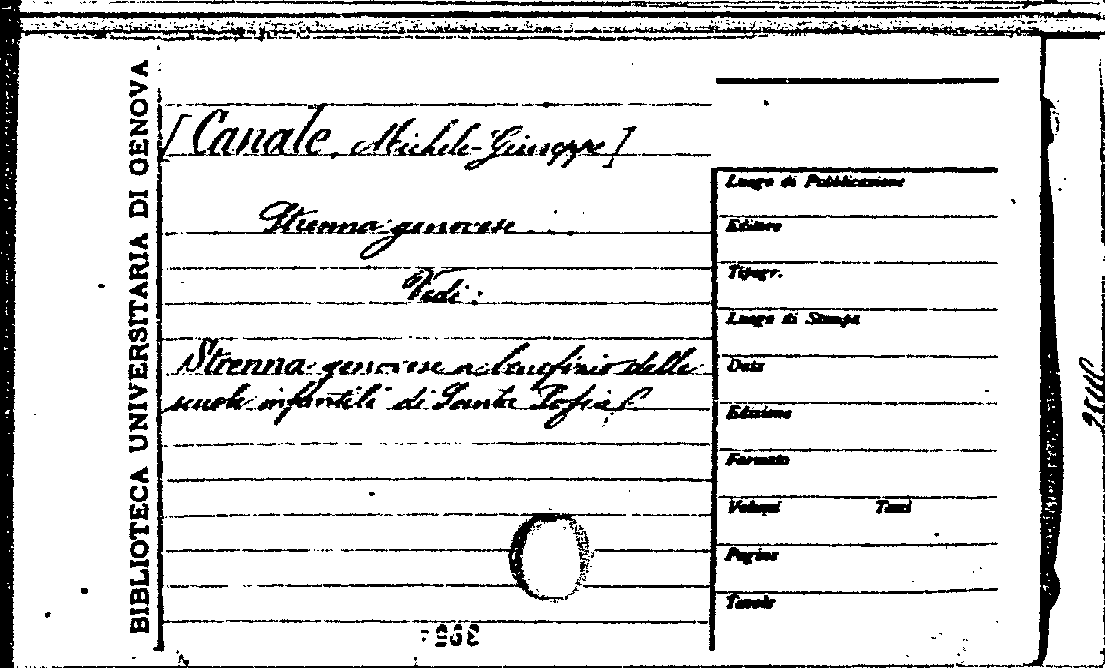 BIBLIOTECA UNIVERSITARIA DI GENOVA
[Canale, Michele-Giuseppe]
Strenna genovese ....
Vedi:
Strenna genovese a benefizio delle
scuole infantili di Santa Sofia
Luogo di Pubblicazione
Editore
Tipogr.
Luogo di Stampa
Data
Edizione
Formato
Volumi Tomi
Pagine
Tavole